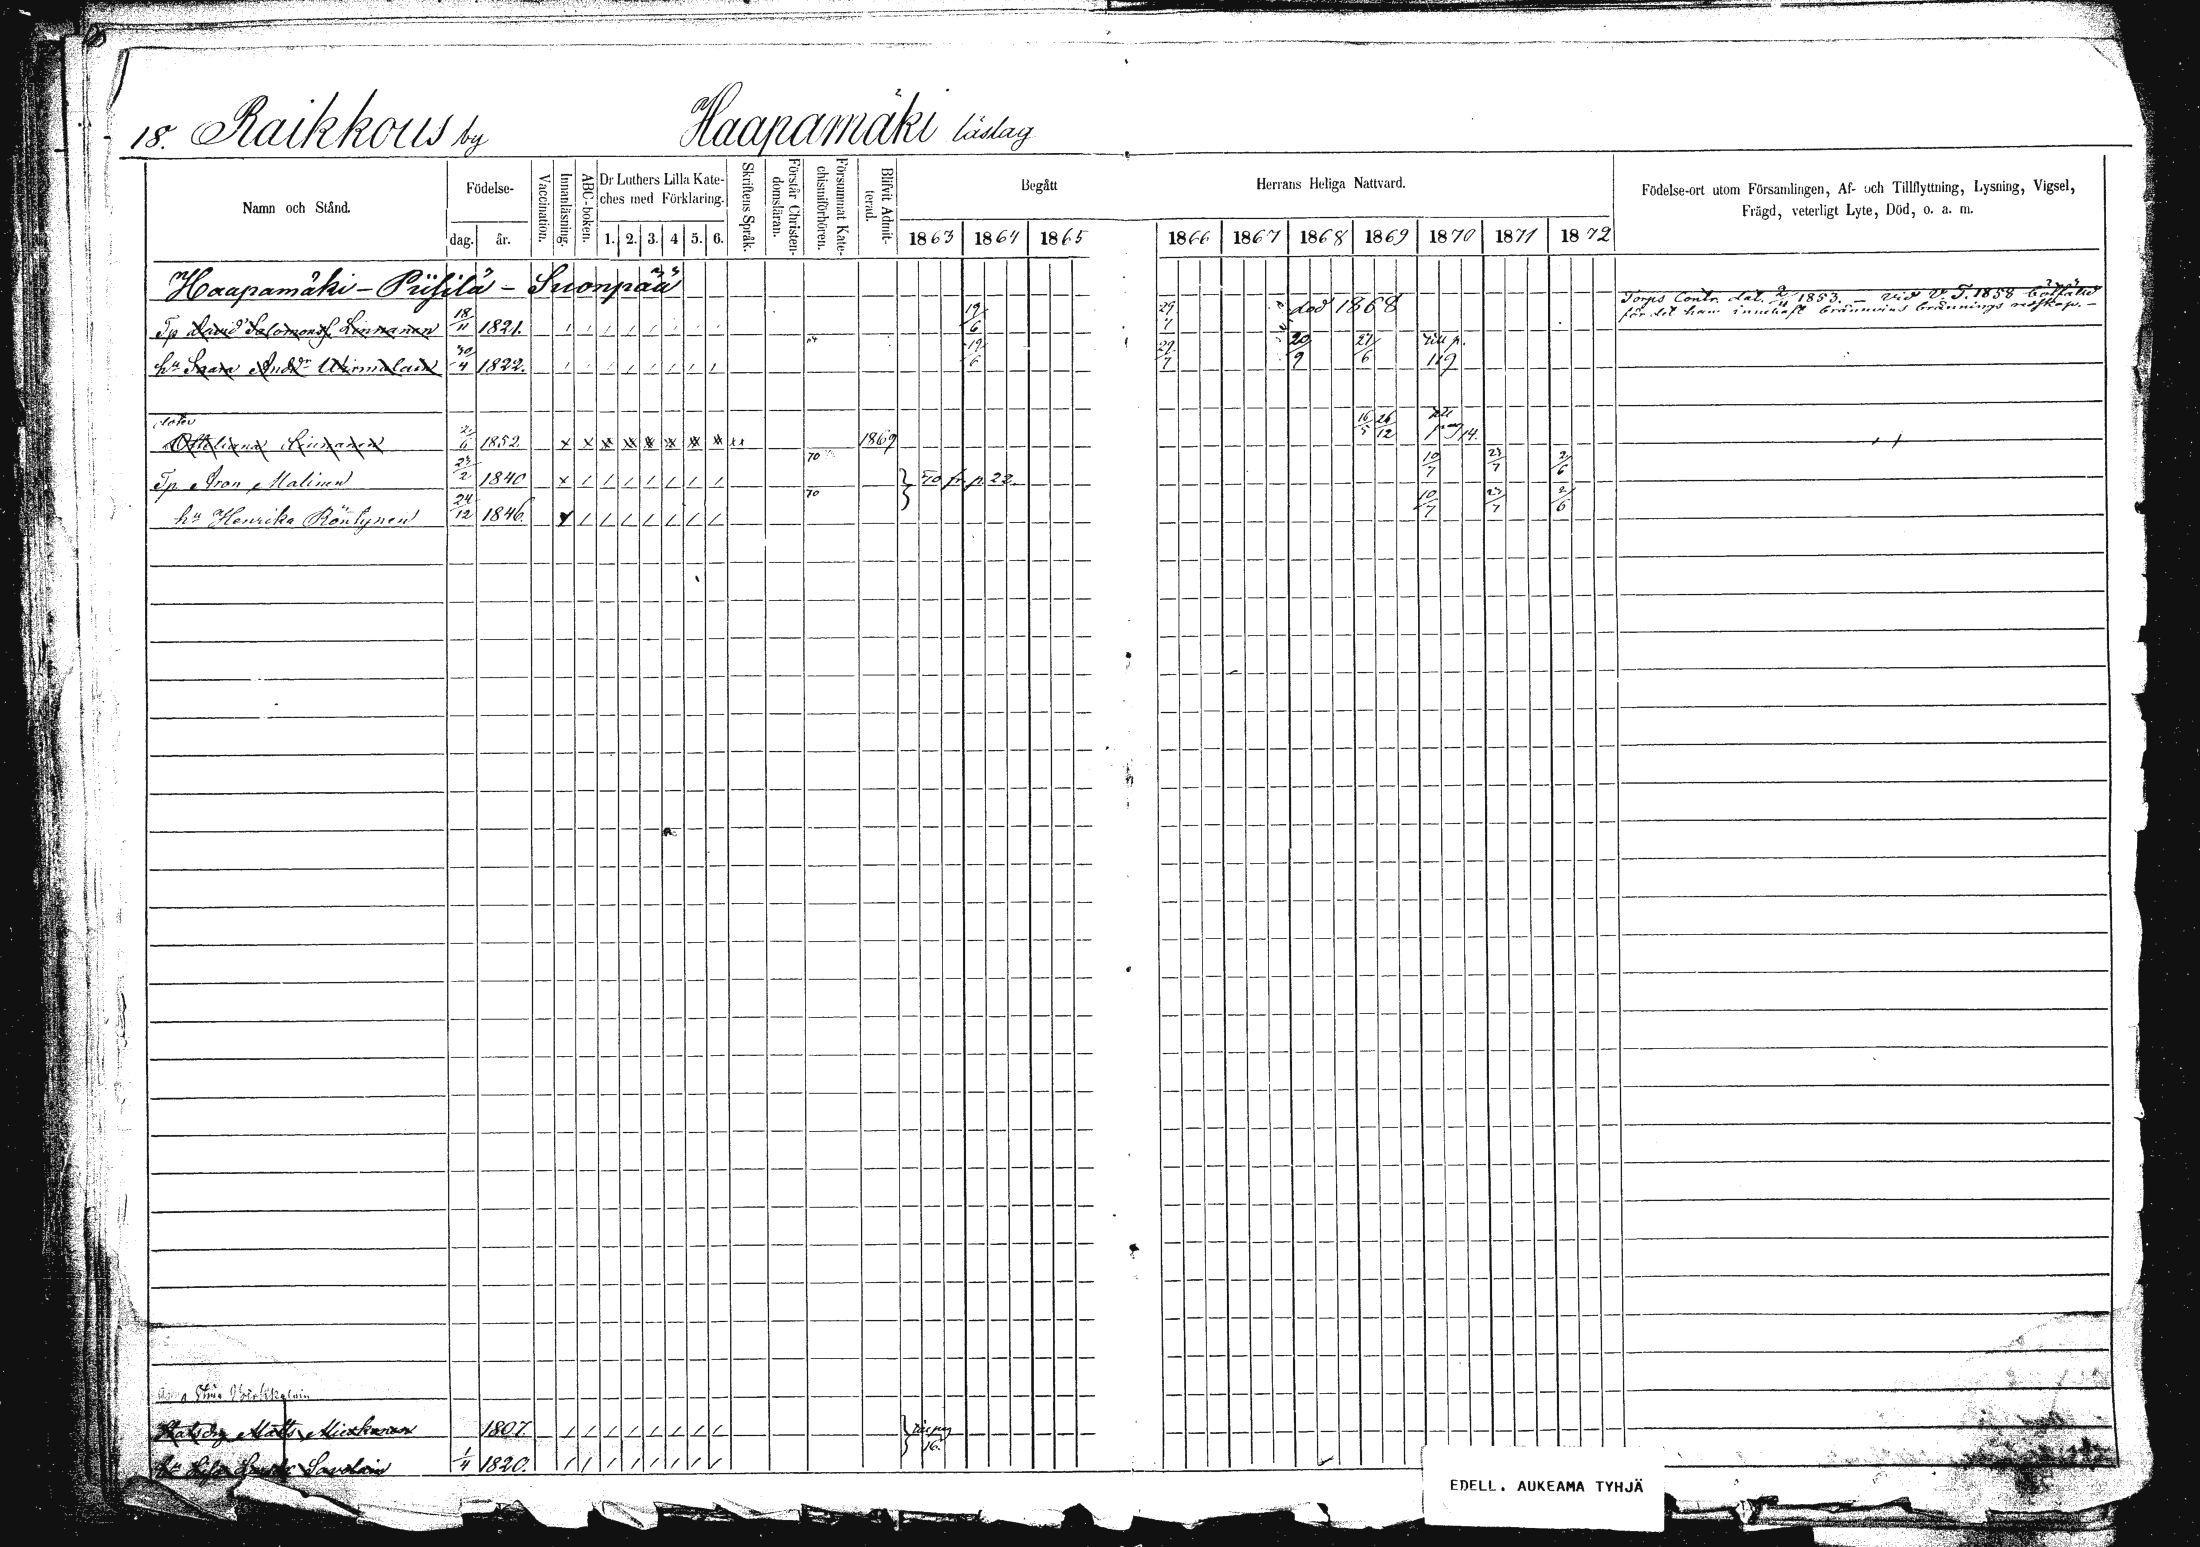 18. Raikkous by Haapamäki läslag
Namn och Stånd.
Födelse-
dag. år.
Vaccination.
Innanläsning.
ABC-boken.
Dr Luthers Lilla Kate-
ches med Förklaring.
1. 2. 3. 4 5. 6.
Skriftens Språk.
Förstår Christen-
domsläran.
Försummat Kate-
chismiförhören.
Blifvit Admit-
terad.
Begått Herrans Heliga Nattvard.
1863 1864 1865 1866 1867 1868 1869 1870 1871 1872
Födelse-ort utom Församlingen, Af- och Tillflyttning, Lysning, Vigsel,
Frägd, veterligt Lyte, Död, o. a. m.
Haapamäki - Piisilä - Suonpää
Torps Contr. dat. 1853. - vid V. T. 1858 bötfälld
för det han innehaft brännvins brännings redskap. -
Tp David Salomonss. Linnanen 18/11 1821. 19/6 29/7 död 1868
hu Anddr 30/4 1822. 19/6 29/7 20/9 27/6 till p. 119
dotter
Linnanen 1852 1869 16/5 26/12 till pag 14.
Tp Aron Malinen 23/2 1840 70 70 fr. p. 22. 10/7 23/7 2/6
hu Henrika Röntynen 24/12 1846. 70 10/7 23/7 2/6
Stina
Matts 1807.
16.
hu Savolain 1/4 1820.
EDELL. AUKEAMA TYHJÄ